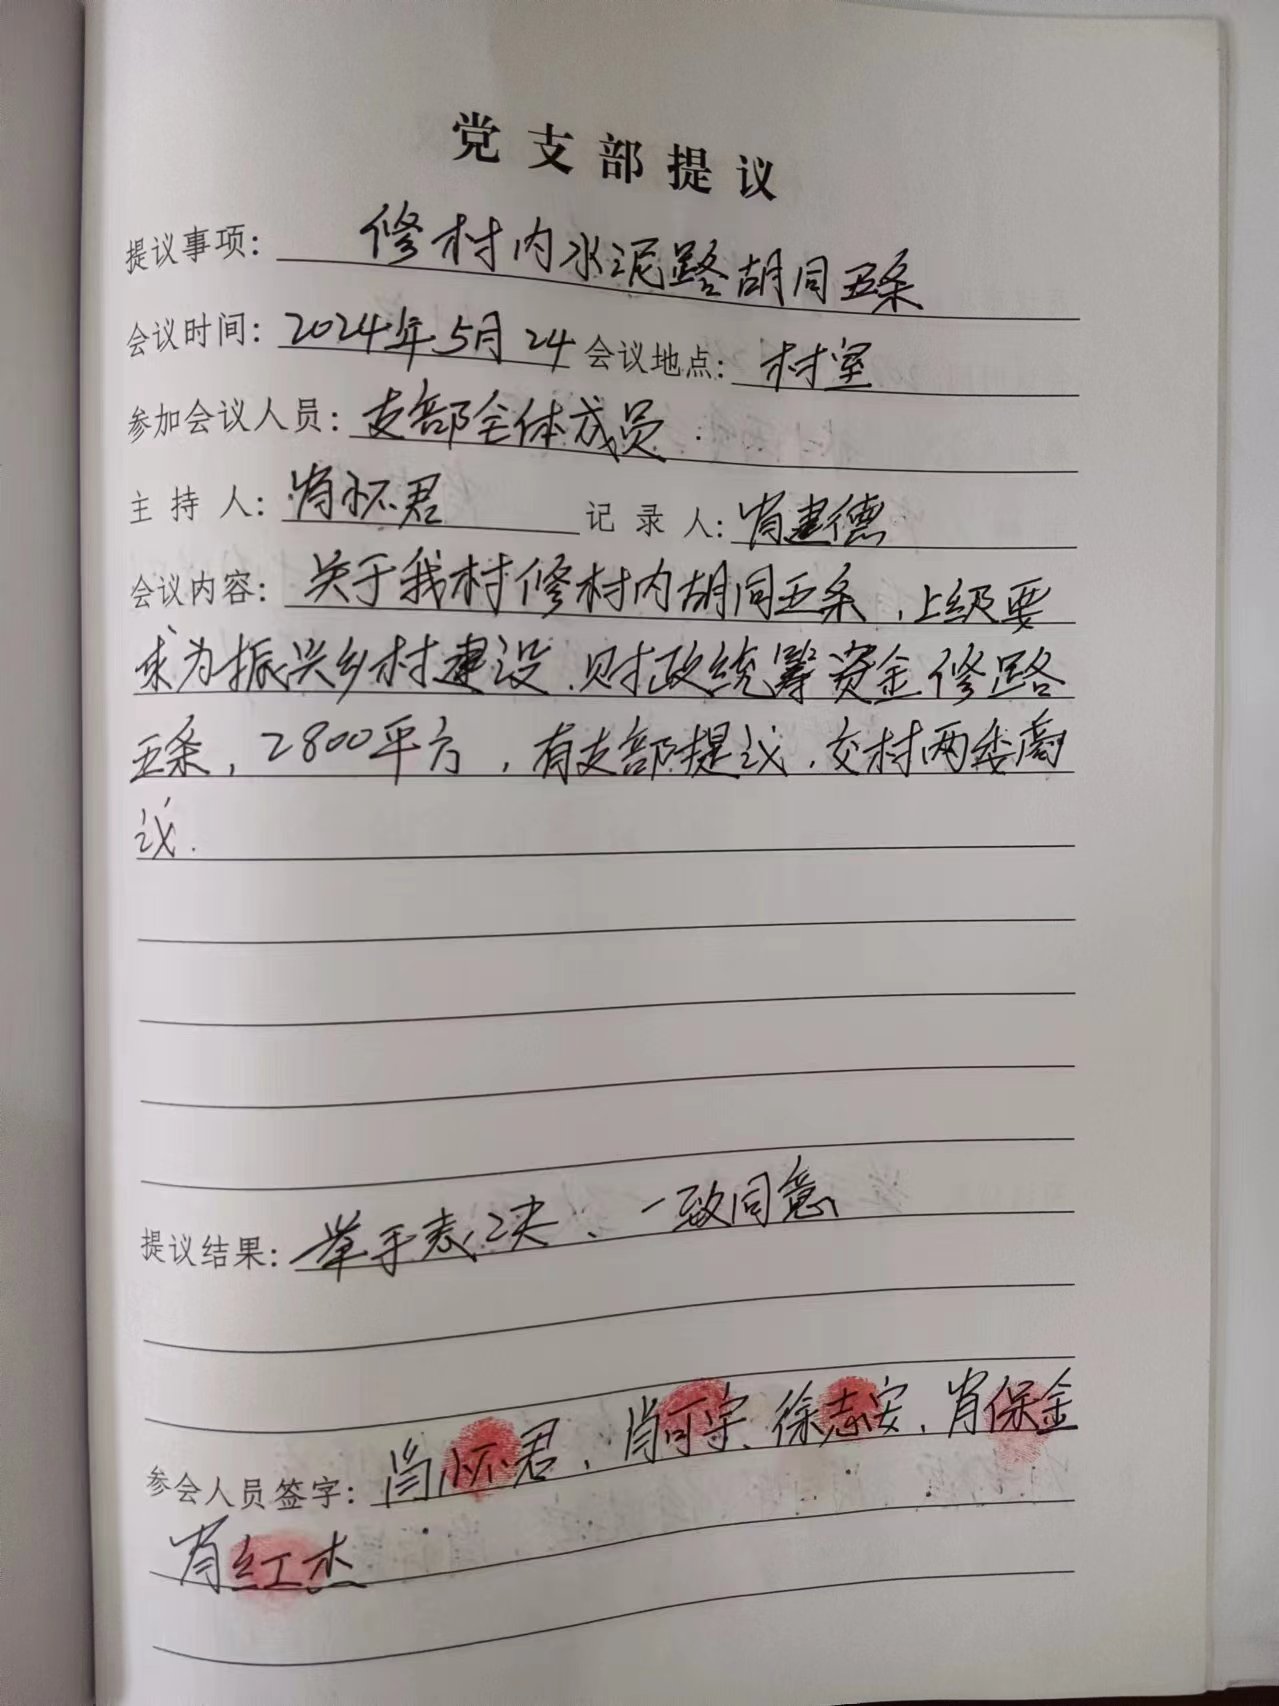 党支部提议
提议事项: 修村内水泥路胡同五条
会议时间: 2024年5月24 会议地点: 村室
参加会议人员: 支部全体成员
主持人: 肖怀君 记录人: 肖建德
会议内容: 关于我村修村内胡同五条，上级要
求为振兴乡村建设.财政统筹资金修路
五条，2800平方，有支部提议.交村两委商
议.
提议结果: 举手表决、一致同意
参会人员签字: 肖怀君、肖可宇、徐志安、肖保金
肖红杰